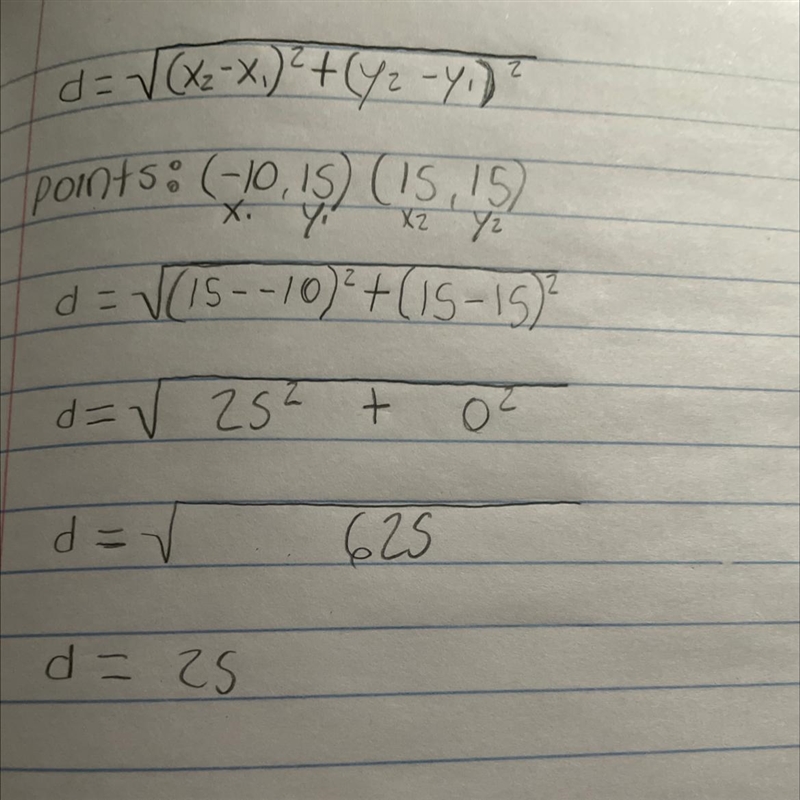 d = √(x₂ - x₁)² + (y₂ - y₁)²
points: (-10, 15) (15, 15)
x₁ y₁ x₂ y₂
d = √(15 - -10)² + (15 - 15)²
d = √ 25² + 0²
d = √ 625
d = 25